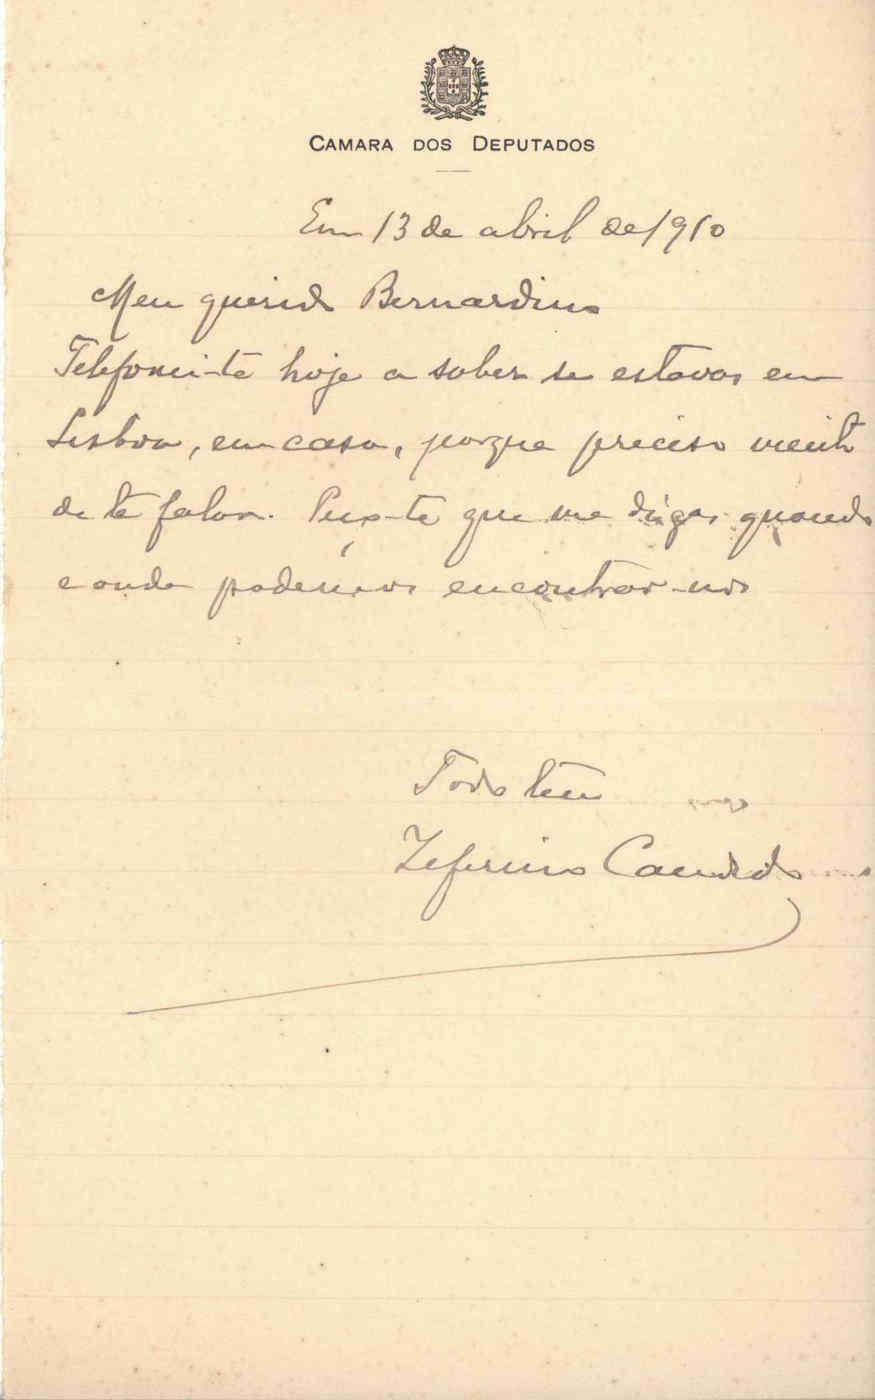 CAMARA DOS DEPUTADOS
Em 13 de abril de 1910
Meu querido Bernardino
Telefonei-te hoje a saber se estavas em
Lisboa, em casa, porque preciso muito
de te falar. Peço-te que me digas quando
e onde poderemos encontrar-nos
Todo teu
Zeferino Candido